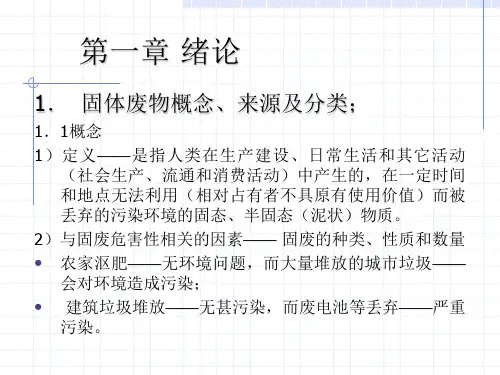 第一章 绪论
1. 固体废物概念、来源及分类；
1．1概念
1）定义——是指人类在生产建设、日常生活和其它活动
（社会生产、流通和消费活动）中产生的，在一定时间
和地点无法利用（相对占有者不具原有使用价值）而被
丢弃的污染环境的固态、半固态（泥状）物质。
2）与固废危害性相关的因素—— 固废的种类、性质和数量
• 农家沤肥——无环境问题，而大量堆放的城市垃圾——
会对环境造成污染；
• 建筑垃圾堆放——无甚污染，而废电池等丢弃——严重
污染。